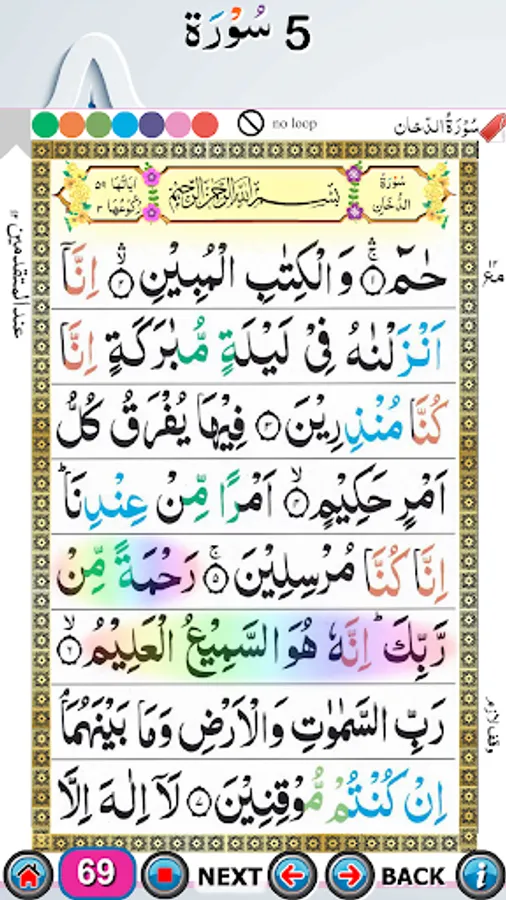 5 سُوْرَة
no loop
سُوْرَةُ الدُّخَان
سُوْرَةُ الدُّخَانِ
بِسْمِ اللهِ الرَّحْمٰنِ الرَّحِيْمِ
اٰيَاتُهَا ٥٩
رُكُوْعُهَا ٣
حٰمٓ ۚۛ ١ وَ الْكِتٰبِ الْمُبِيْنِ ۙۛ ٢ اِنَّاۤ
اَنْزَلْنٰهُ فِيْ لَيْلَةٍ مُّبٰرَكَةٍ اِنَّا
كُنَّا مُنْذِرِيْنَ ٣ فِيْهَا يُفْرَقُ كُلُّ
اَمْرٍ حَكِيْمٍ ۙ ٤ اَمْرًا مِّنْ عِنْدِنَا ؕ
اِنَّا كُنَّا مُرْسِلِيْنَ ۚ ٥ رَحْمَةً مِّنْ
رَّبِّكَ ؕ اِنَّهٗ هُوَ السَّمِيْعُ الْعَلِيْمُ ۙ ٦
رَبِّ السَّمٰوٰتِ وَالْاَرْضِ وَمَا بَيْنَهُمَا ۘ
اِنْ كُنْتُمْ مُّوْقِنِيْنَ ٧ لَاۤ اِلٰهَ اِلَّا
عند المتقدمين ١٢
69
NEXT
BACK
i